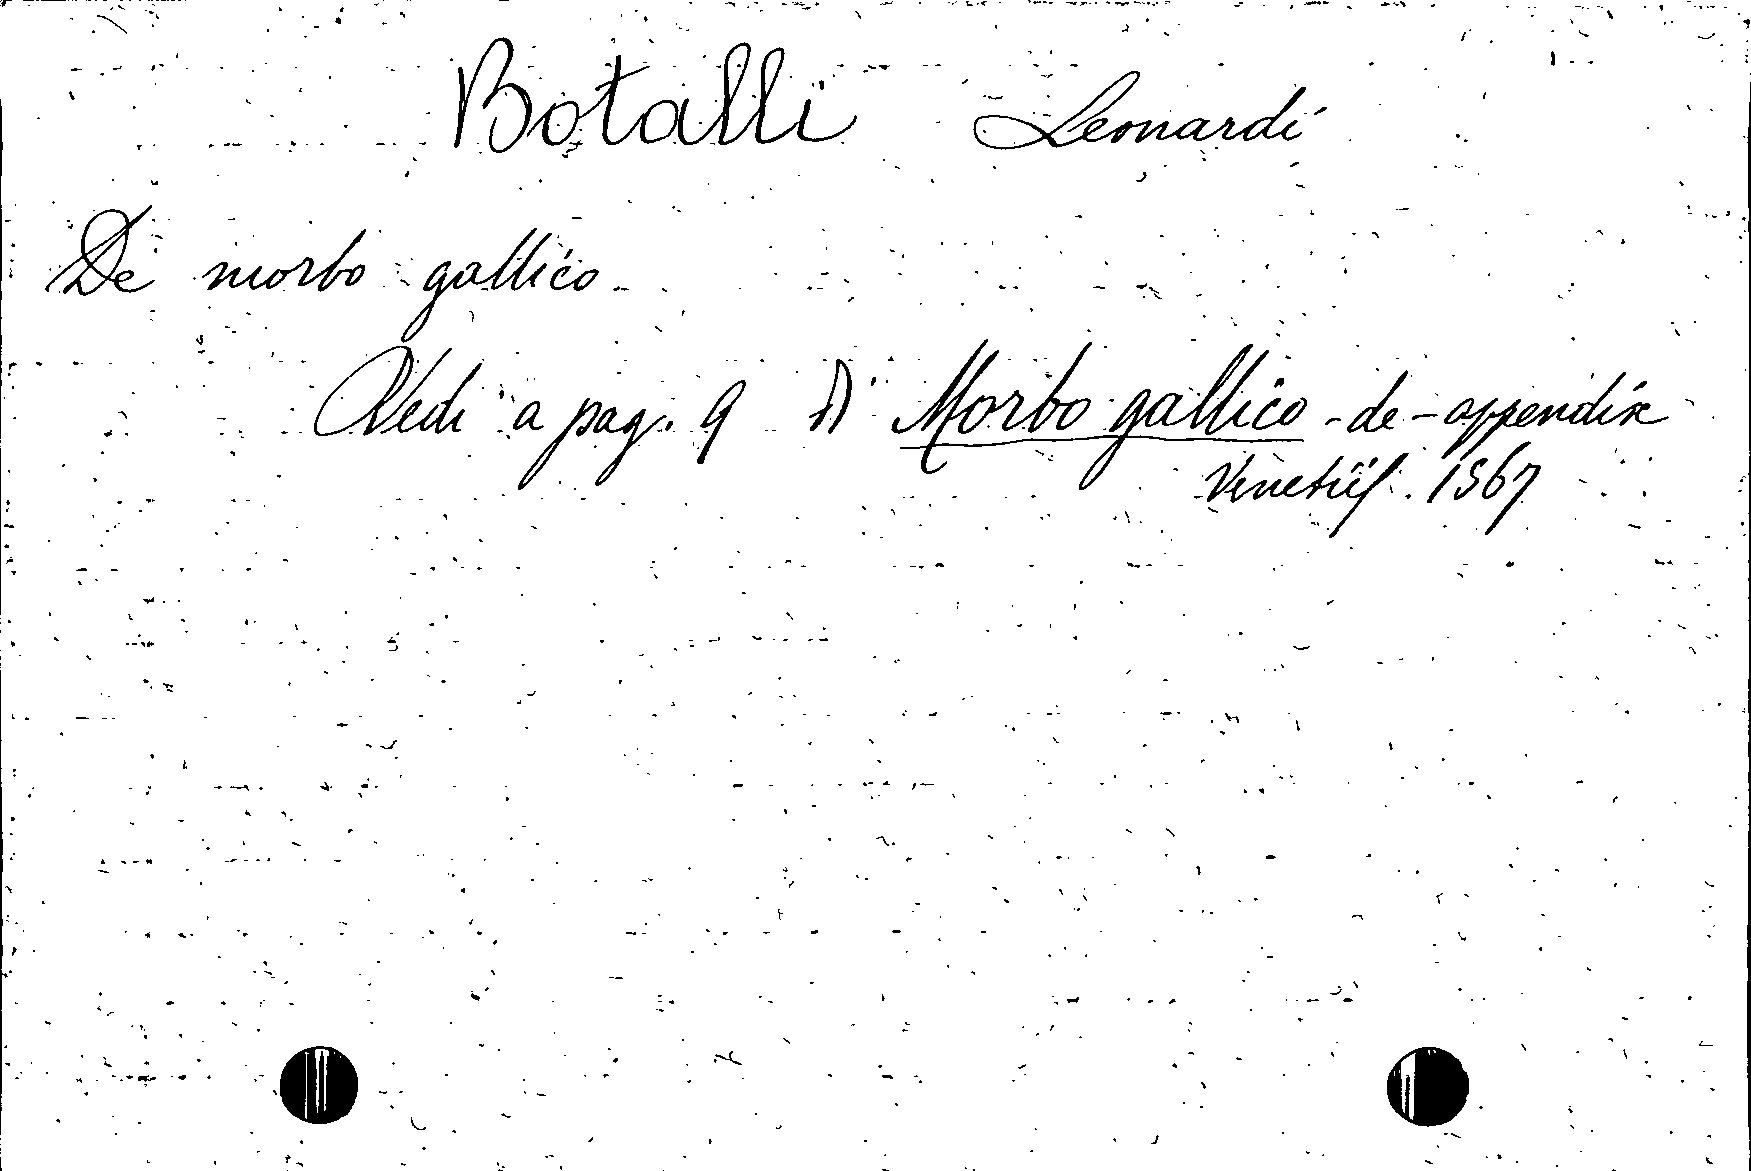 Botalli Leonardi
De morbo gallico
Vedi a pag. 9 di Morbo gallico - de - appendix
Venetiis. 1567